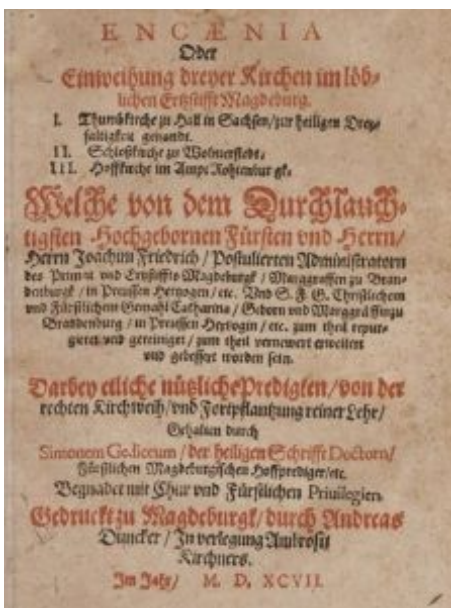 ENCÆNIA
Oder
Einweihung dreyer Kirchen im löb-
lichen Ertzstifft Magdeburg.
I. Thumbkirche zu Hall in Sachsen/zur heiligen Drey-
faltigkeit genandt.
II. Schloßkirche zu Wolmerstedt.
III. Hoffkirche im Ampt Rohtenburgk.
Welche von dem Durchlauch-
tigsten Hochgebornen Fürsten vnd Herrn/
Herrn Joachim Friedrich / Postulierten Administratorn
des Primat vnd Ertzstiffts Magdeburgk / Marggraffen zu Bran-
denburgk / in Preussen Hertzogen / etc. Vnd S. F. G. Christlichem
vnd Fürstlichem Gemahl Catharina / Geborn vnd Marggräffin zu
Brandenburg / in Preussen Hertzogin / etc. zum theil repur-
gieret vnd gereiniget / zum theil vernewert erweitert
vnd gebessert worden sein.
Darbey etliche nützliche Predigten / von der
rechten Kirchweih / vnd Fortpflantzung reiner Lehr /
Gehalten durch
Simonem Gediccum / der heiligen Schrifft Doctorn /
Fürstlichen Magdeburgischen Hoffprediger / etc.
Begnadet mit Chur vnd Fürstlichen Priuilegien.
Gedruckt zu Magdeburgk / durch Andreas
Duncker / In verlegung Ambrosij
Kirchners.
Im Jahr / M. D. XCVII.